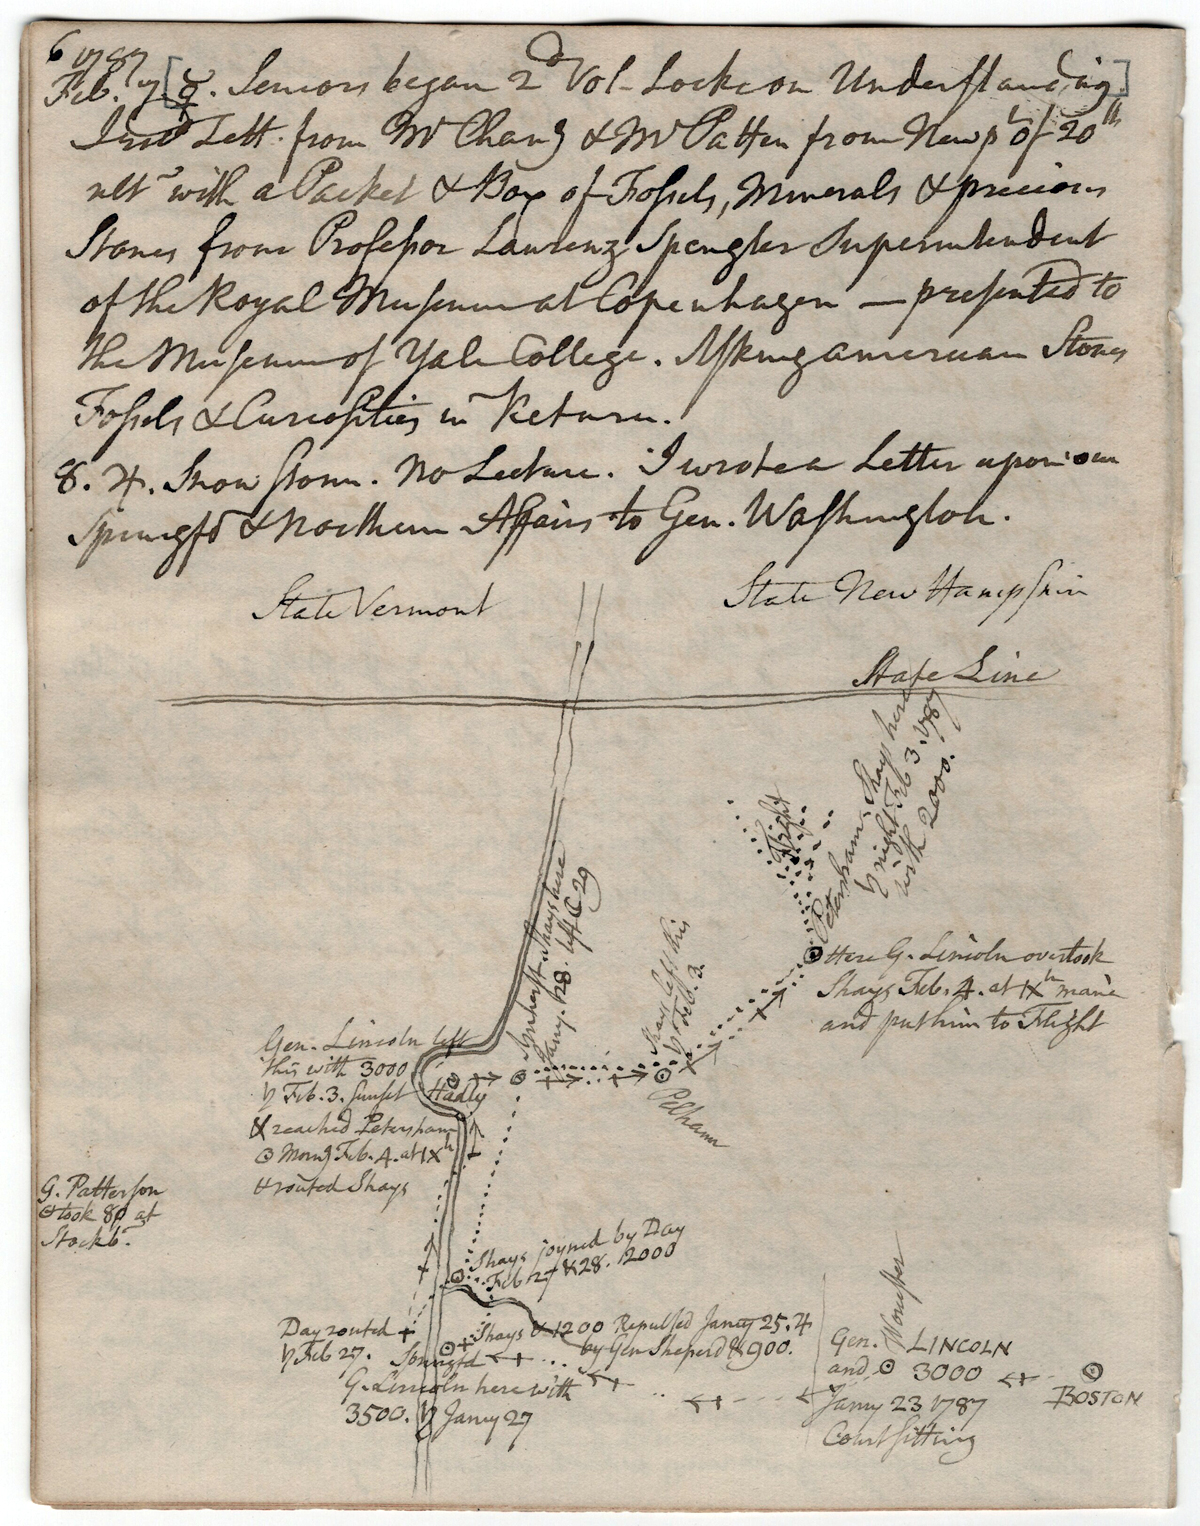 6 1787
Feb. 7 [☿. Seniors began 2d Vol. Locke on Understanding.]
I recd Lett. from Mr Chang & Mr Patten from Newpt of 20th
ult with a Packet & Box of Fossels, Minerals & precious
Stones from Professor Laurenz Spengler Superintendent
of the Royal Museum at Copenhagen — presented to
the Museum of Yale College. Asking american Stones
Fossels & Curiosities in Return.
8. ♃. Snow storm. No Lecture. I wrote a Letter upon our
Springfd & Northern Affairs to Gen. Washington.
State Vermont
State New Hampshire
State Line
Flight
Petersham. Shays here
♄ night Feb 3. 1787
with 2000.
Amherst. Shays here
Janry. 28. left 29
Shays left this
♄ Feb. 3.
Here G. Lincoln overtook
Shays Feb. 4. at IXh mane
and put him to Flight
Gen. Lincoln left
this with 3000
♄ Feb. 3. sunset
& reached Petersham
☉ Morng Feb. 4. at IXh
& routed Shays
Hadly
Pelham
G. Patterson
took 80 at
Stockb.
Shays joyned by Day
Feb 27 & 28. 2000
Day routed
♄ Feb 27.
Shays & 1200 Repulsed Janry 25. ♃
by Gen Sheperd & 900.
Springfd
G. Lincoln here with
3500. ♄ Janry 27
Worcester
Gen. LINCOLN
and 3000
Janry 23 1787
Court sitting
BOSTON